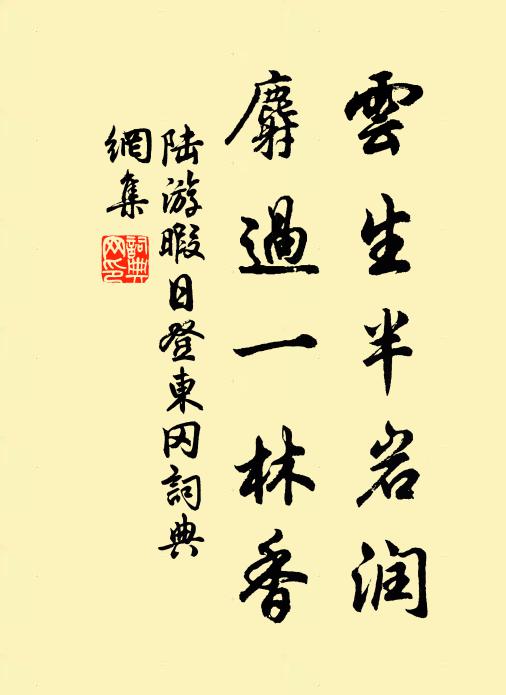 雲生半岩润
麝過一林香
陆游暇日登東冈詞典
網集
詞典
网印